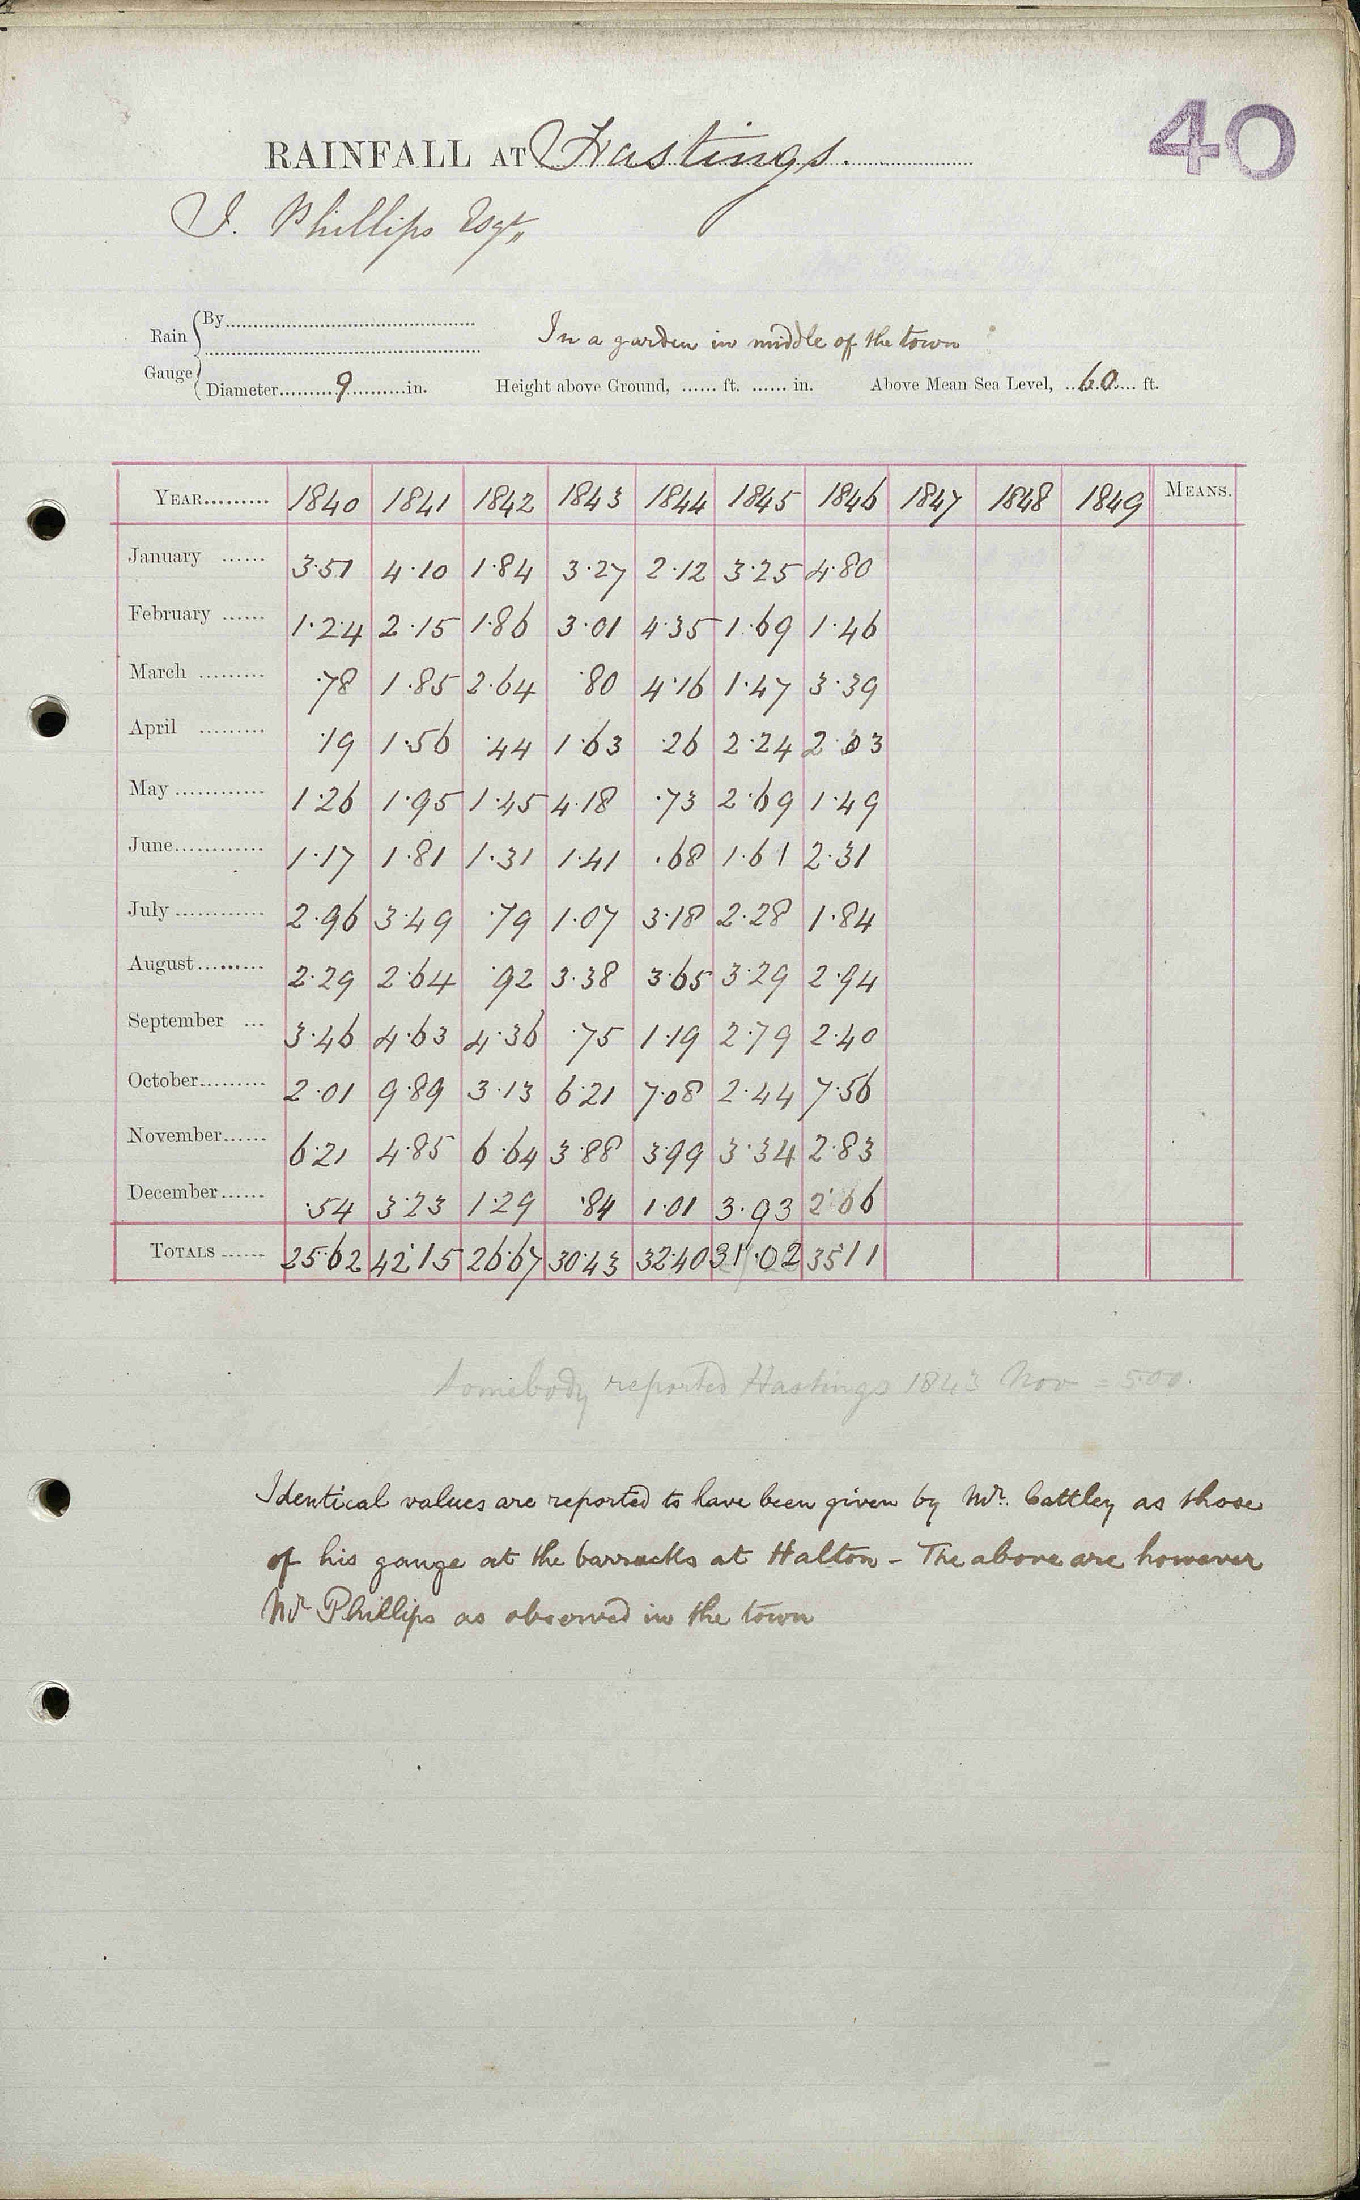 40
RAINFALL AT Hastings.
J. Phillips Esqre
Rain Gauge By
In a garden in middle of the town
Diameter 9 in. Height above Ground, ...... ft. ...... in. Above Mean Sea Level, 60 ft.
YEAR 1840 1841 1842 1843 1844 1845 1846 1847 1848 1849 MEANS.
January 3.51 4.10 1.84 3.27 2.12 3.25 4.80
February 1.24 2.15 1.86 3.01 4.35 1.69 1.46
March .78 1.85 2.64 .80 4.16 1.47 3.39
April .19 1.56 .44 1.63 .26 2.24 2.03
May 1.26 1.95 1.45 4.18 .73 2.69 1.49
June 1.17 1.81 1.31 1.41 .68 1.61 2.31
July 2.96 3.49 .79 1.07 3.18 2.28 1.84
August 2.29 2.64 .92 3.38 3.65 3.29 2.94
September 3.46 4.63 4.36 .75 1.19 2.79 2.40
October 2.01 9.89 3.13 6.21 7.08 2.44 7.56
November 6.21 4.85 6.64 3.88 3.99 3.34 2.83
December .54 3.23 1.29 .84 1.01 3.93 2.06
TOTALS 25.62 42.15 26.67 30.43 32.40 31.02 35.11
Somebody reported Hastings 1843 Nov = 5.00.
Identical values are reported to have been given by Mr. Cattley as those
of his gauge at the barracks at Halton - The above are however
Mr Phillips as observed in the town